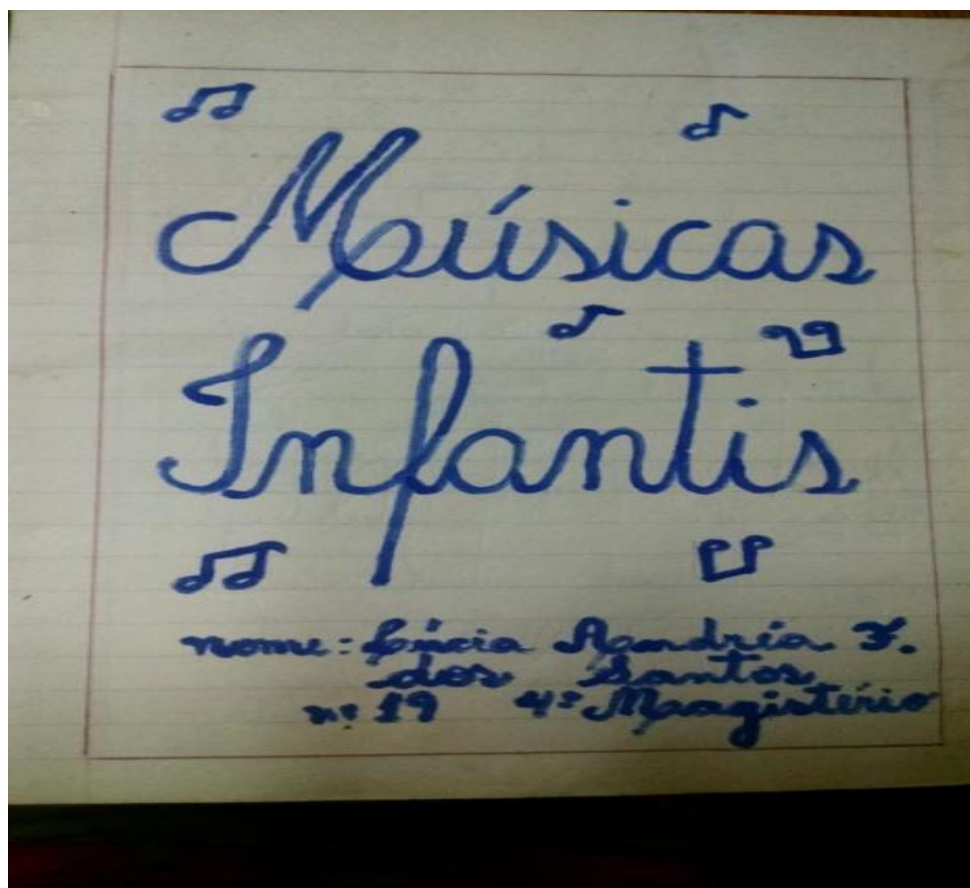 Músicas
Infantis
nome: Lúcia Andréia F.
dos Santos
nº 19 4º Magistério